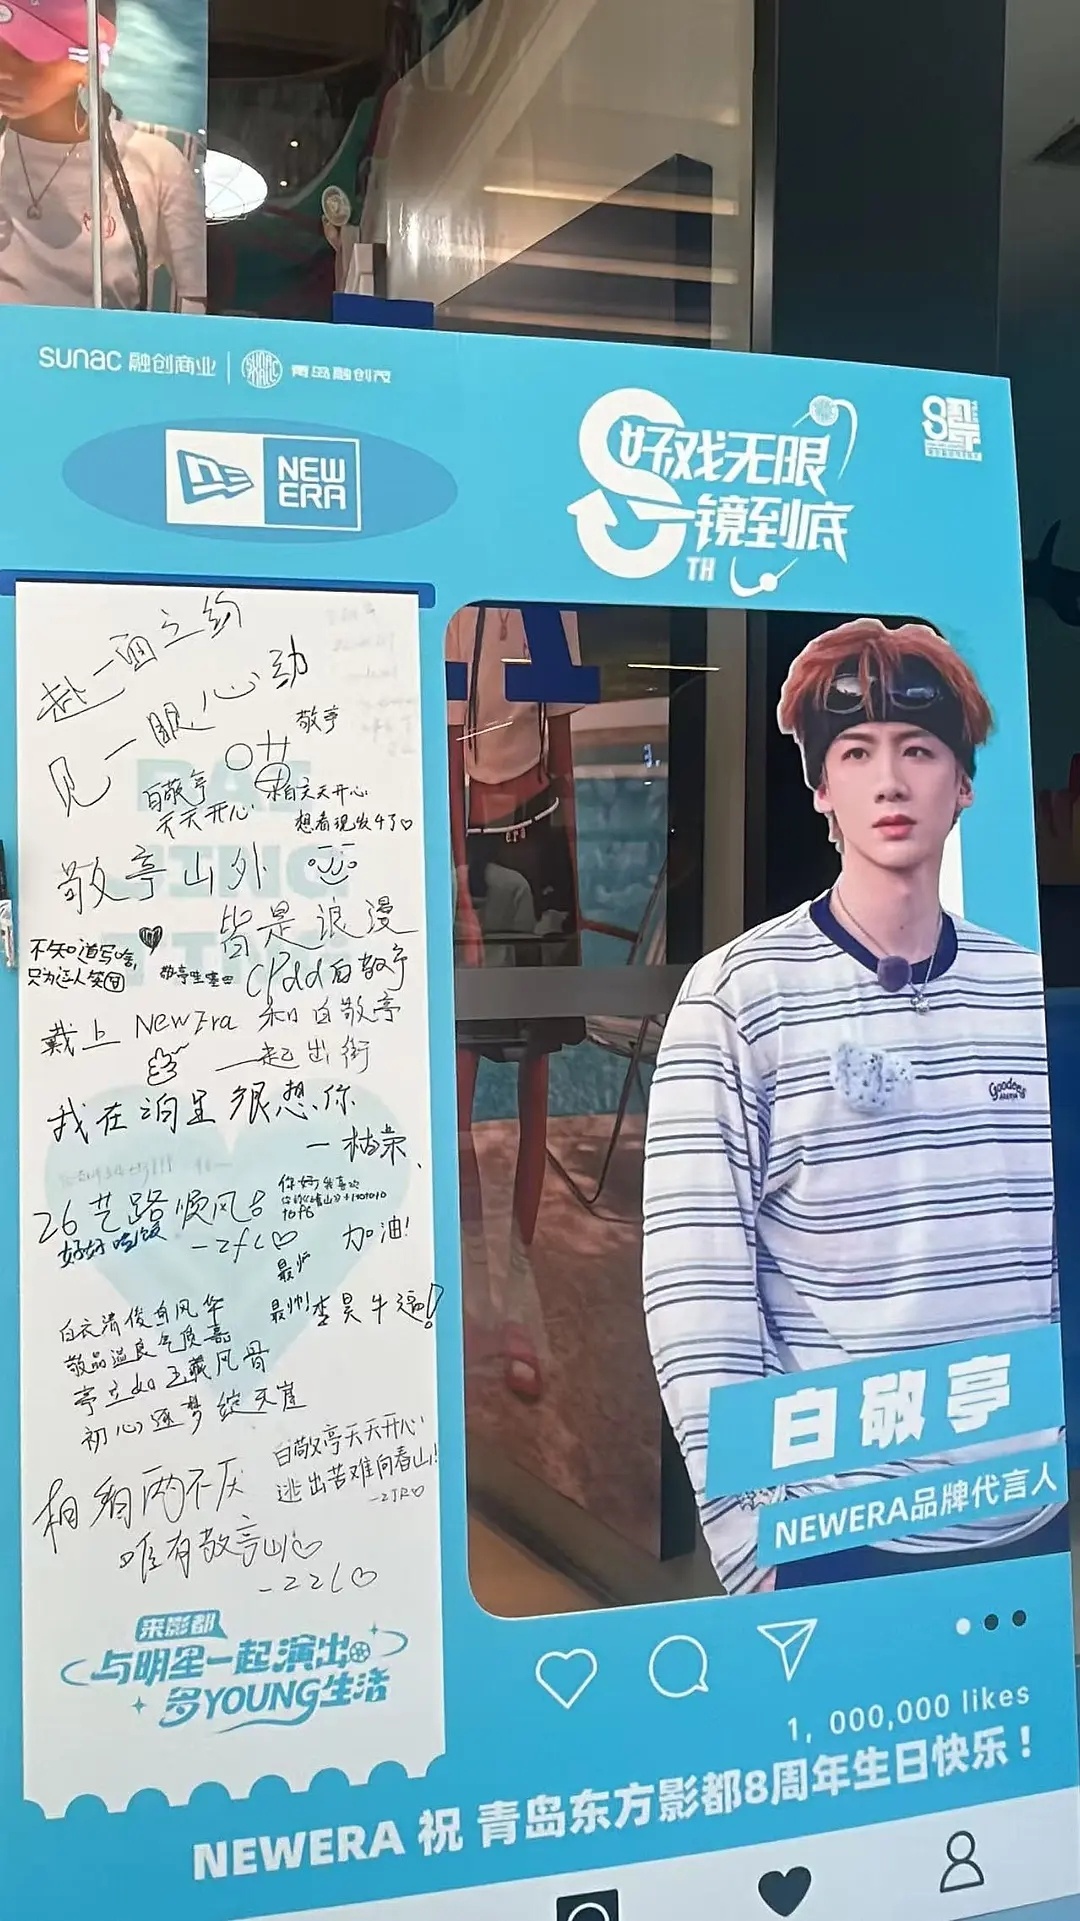 sunac 融创商业
青岛融创茂
NEW ERA
好戏无限
镜到底
TH
赴一面之约
见一眼心动
敬亭
白敬亭
天天开心
天天开心
想看现发4了♡
敬亭山外
皆是浪漫
不知道写啥,
只为这人笑
cpdd白敬亭
戴上 NewEra 和白敬亭
一起出街
我在泊里很想你
一枯荣
26艺路顺风
好好吃饭
-zfl♡
你好,我喜欢
加油!
最帅
最帅李昊牛逼!
白衣清俊自风华
敬品温良气质嘉
亭立如玉藏风骨
初心逐梦绽天崖
白敬亭天天开心
逃出苦难向春山!
-ZJR♡
相看两不厌
唯有敬亭山♡
-zzl♡
来影都
与明星一起演出
多YOUNG生活
Goodees
白敬亭
NEWERA品牌代言人
1, 000,000 likes
NEWERA 祝 青岛东方影都8周年生日快乐！